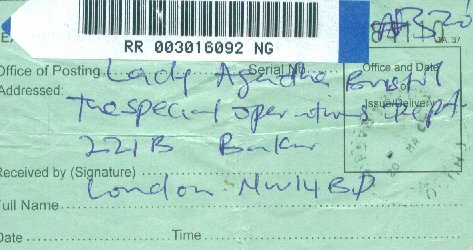 ₦320
RR 003016092 NG
A. 37
Office of Posting Lady Agatha Bristol
Serial No.
Office and Date
of
Issue/Delivery
Addressed: The special operations Dept
221B Baker
Received by (Signature)
London NW14BD
Full Name
Date Time